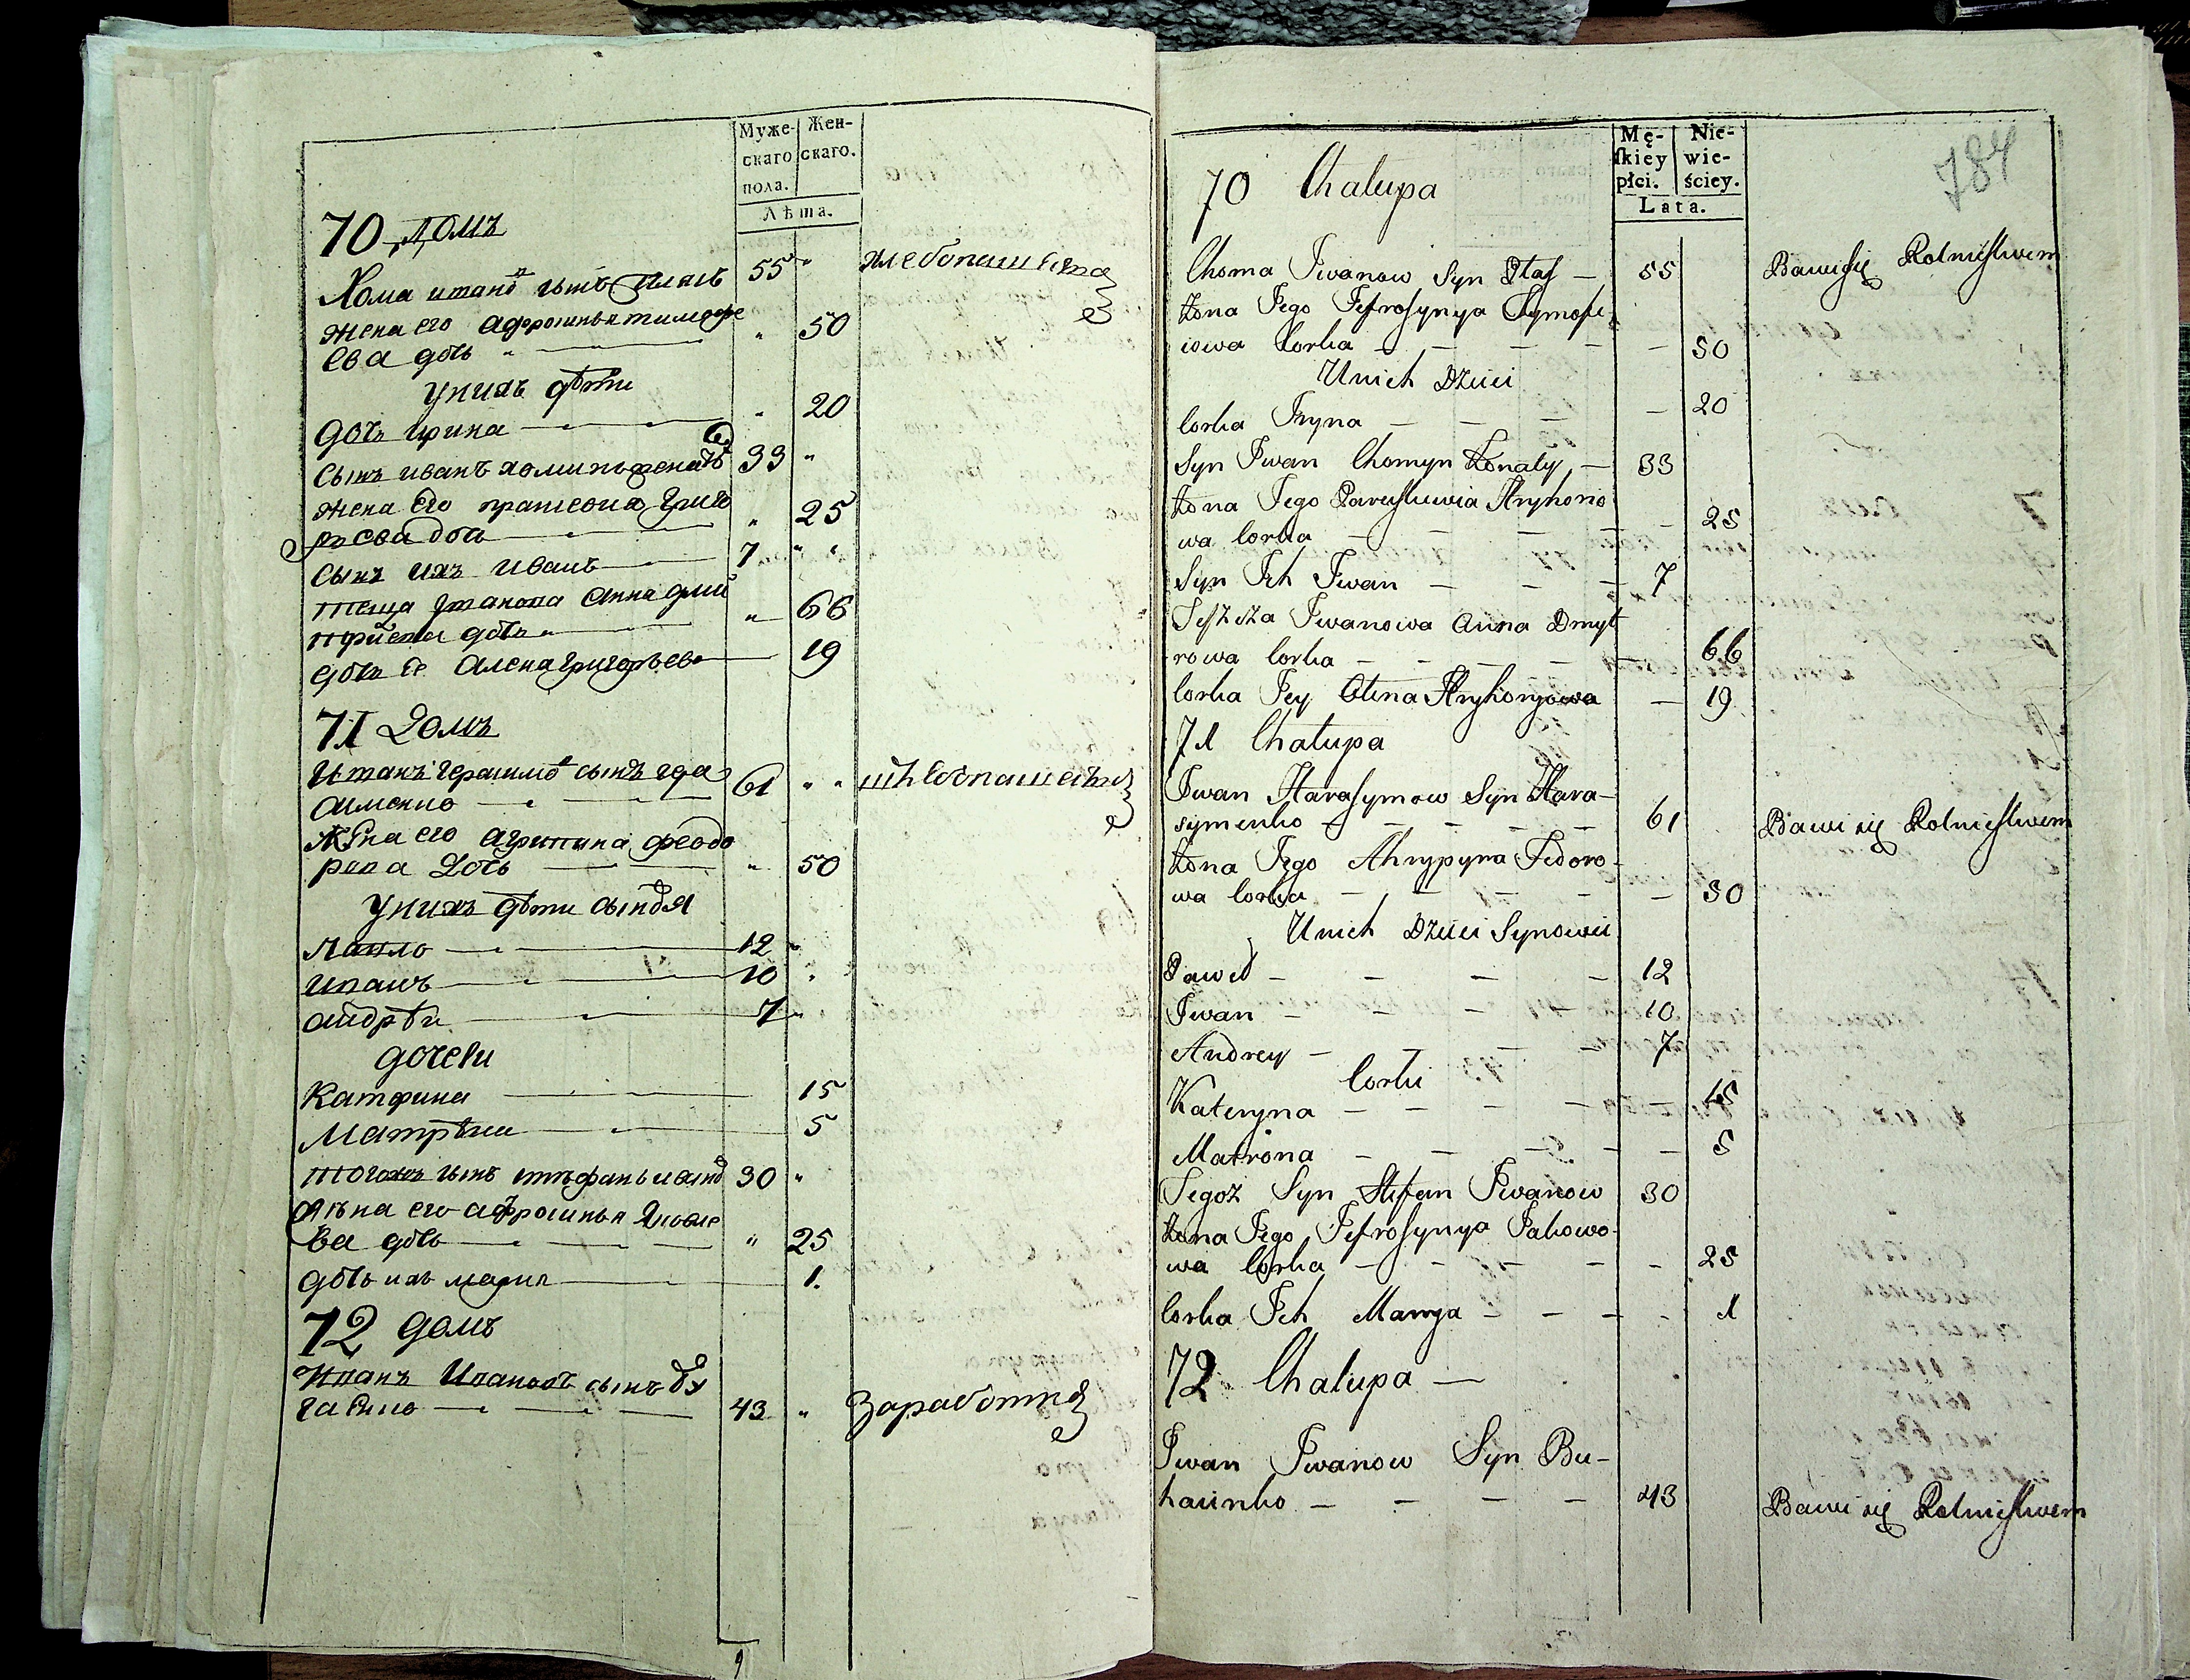 Муже-
скаго
пола.
Жен-
скаго.
Лѣта.
70 домъ
Хома сынъ 55 "
жена его тимофе
ева дочь " 50
унихъ дѣти
дочь ирина " 20
сынъ иванъ 33 "
жена его григо
" 25
сынъ ихъ иванъ 7 " "
теща анна дми
дочь " " 66
дочь ее алена григорьева 19
71 домъ
сынъ гера
61 " "
жена его агрипина феодо
рова дочь " 50
унихъ дѣти сыновя
павло 12 "
иванъ 10 "
андрѣй 7 "
дочери
катерина 15
матрѣна 5
тогожъ сынъ стефанъ ивановъ 30 "
жена его яковле
ва дочь " 25
дочь ихъ мария 1.
72 домъ
иванъ ивановъ сынъ бу
43 "
784
Mę-
skiey
płci.
Nie-
wie-
ściey.
Lata.
70 Chalupa
Choma Iwanow Syn Ptas — 55 Bawi się Rolnictwem
Żona Jego Jefrosynya Tymofi-
iowa Corka — — — — — 50
U nich Dzieci
Corka Iryna — — — — 20
Syn Iwan Chomyn Konaty — 33
Żona Jego Paraskiewia Hryhorio
wa Corka — — — — 25
Syn Ich Iwan — — — 7
Teszcza Iwanowa Anna Dmyt
rowa Corka — — — — — 66
Corka Jey Olena Hryhoryowa — 19
71 Chalupa
Iwan Harasymow Syn Hara-
symenko — — — — — 61 Bawi się Rolnictwem
Żona Jego Ahrypyna Fedoro-
wa Corka — — — — — 50
U nich Dzieci Synowie
Paweł — — — — 12
Iwan — — — — 10
Andrey — — — — 7
Corki
Kateryna — — — — — 15
Matrona — — — — — 5
Tegoż Syn Stefan Iwanow 30
Żona Jego Jefrosynya Jakowo-
wa Corka — — — — — 25
Corka Ich Marya — — — — 1
72 Chalupa —
Iwan Iwanow Syn Bu-
haienko — — — — 43 Bawi się Rolnictwem